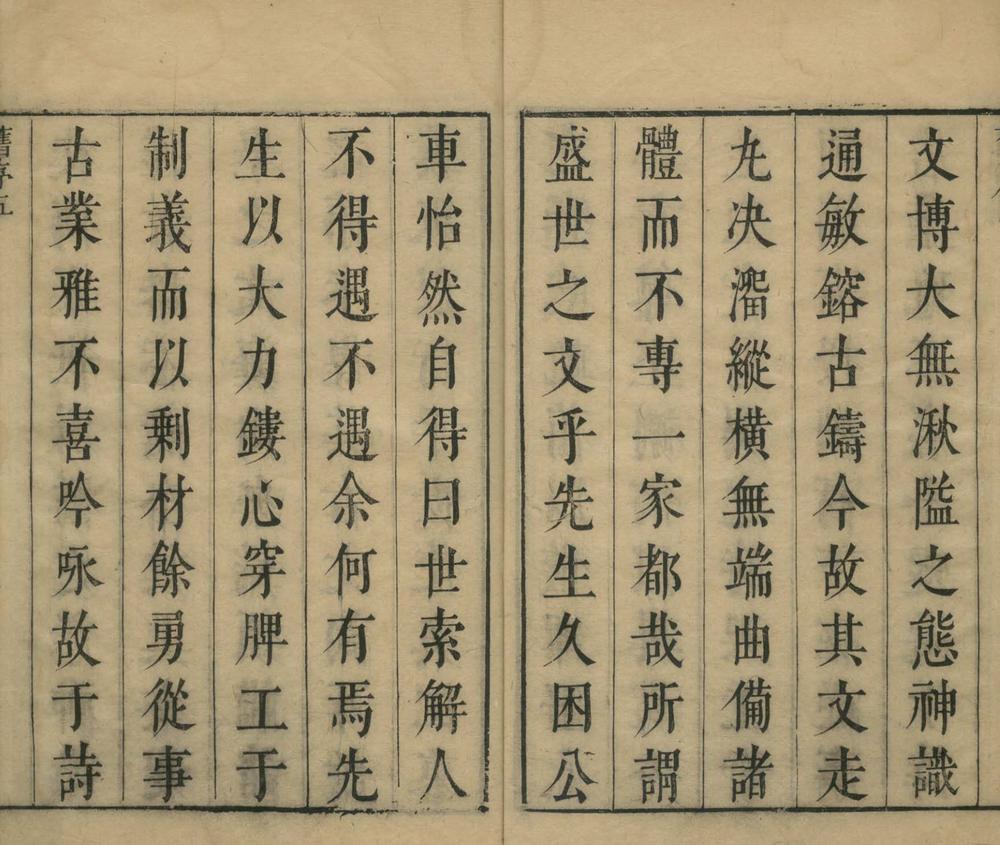 文博大無湫隘之態神識
通敏鎔古鑄今故其文走
九决澑縱橫無端曲備諸
體而不專一家都哉所謂
盛世之文乎先生久困公
車怡然自得曰世索解人
不得遇不遇余何有焉先
生以大力鏤心穿脾工于
制義而以剩材餘勇從事
古業雅不喜吟咏故于詩
舊序五